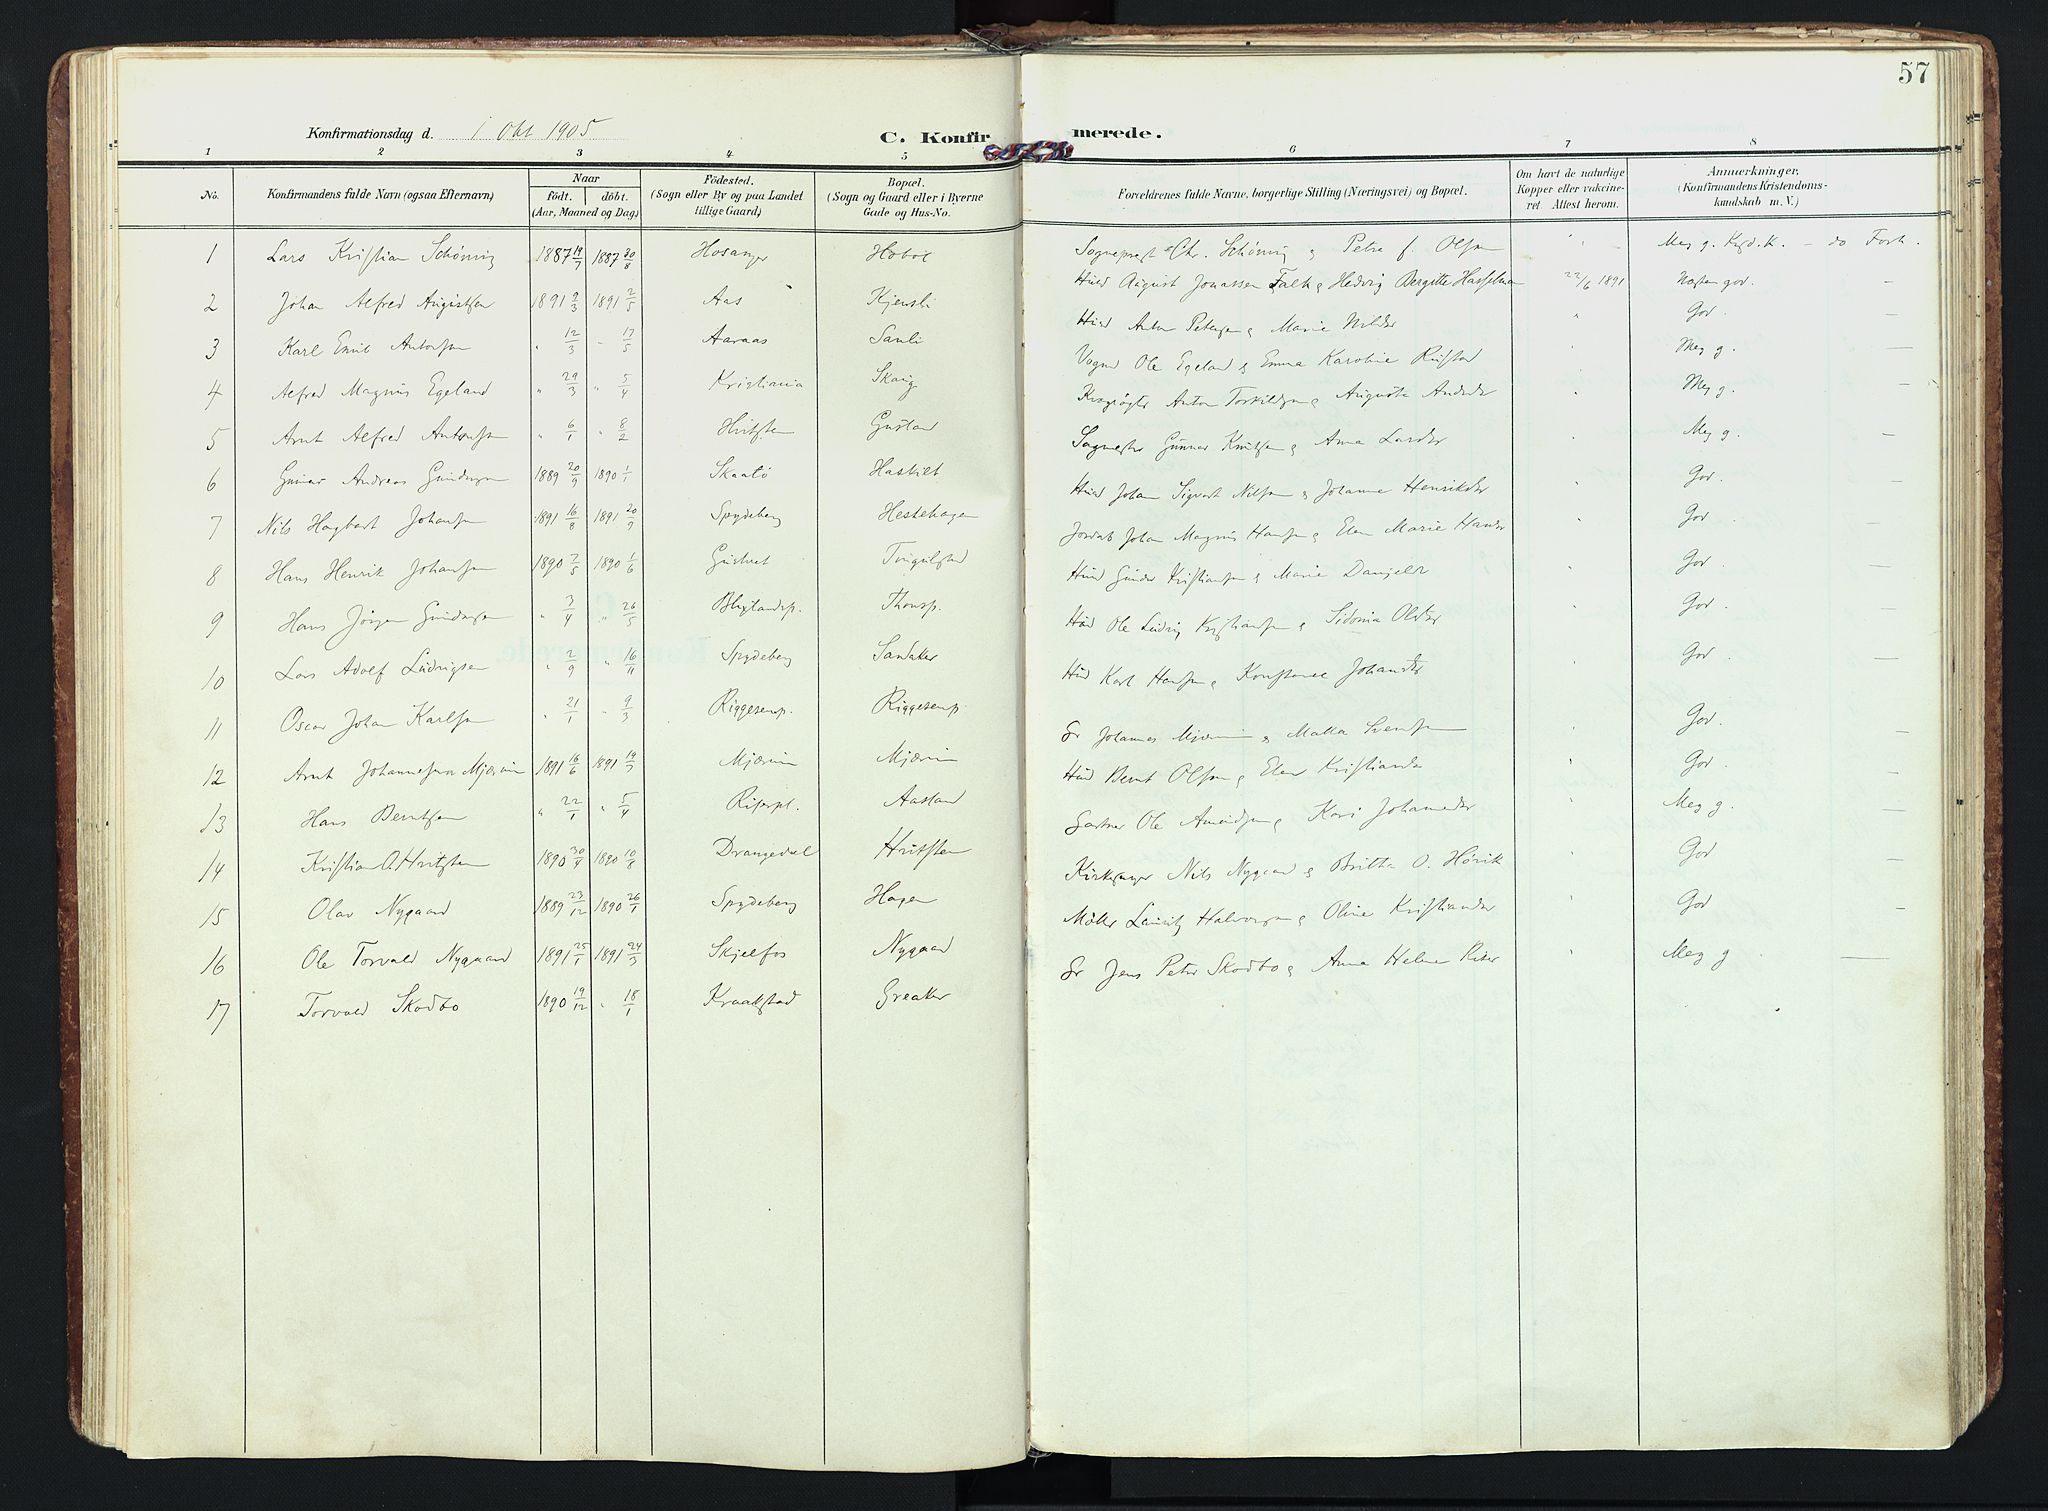 57
Konfirmationsdag d. 1 Okt 1905
C. Konfirmerede.
1 2 3 4 5 6 7 8
No.
Konfirmandens fulde Navn (ogsaa Efternavn)
Naar
födt. döbt.
(Aar, Maaned og Dag)
Födested.
(Sogn eller By og paa Landet
tillige Gaard)
Bopæl.
(Sogn og Gaard eller i Byerne
Gade og Hus-No.
Forældrenes fulde Navne, borgerlige Stilling (Næringsvei) og Bopæl.
Om havt de naturlige
Kopper eller vakcine-
ret Attest herom.
Anmærkninger,
(Konfirmandens Kristendoms-
kundskab m. V.)
1 Lars Kristian Schöning 1887 19/7 1887 30/8 Hosanger Hobøl Sogneprest Chr. Schöning g Petra f. Olsen " Meg g. Krisd.k. - do Forh.
2 Johan Alfred Augustsen 1891 9/3 1891 2/5 Aas Kjensli Husd August Jonassen Falk g Hedvig Bergitte Hasselman 22/6 1891 Næsten god. —
3 Karl Emil Antonsen " 12/3 " 17/5 Aaraas Sanli Husd Anton Petersen g Marie Nilsdr " God. —
4 Alfred Magnus Egeland " 29/3 " 5/4 Kristiania Skaug Vogn Ole Egeland g Emma Karoline Rustad " Meg g. —
5 Arnt Alfred Antonsen " 6/1 " 8/2 Hvitsten Gustad Anton Torkildsen g Augusta Andersdr " Meg g. —
6 Gunar Andreas Gundersen 1889 20/9 1890 1/1 Skaatö Haskilt Sagmester Gunnar Knutsen g Anna Larsdr " Meg g. —
7 Nils Hagbart Johansen 1891 16/8 1891 20/9 Spydeberg Hestehagen Husd Johan Sigvart Nilsen g Johanne Henriksdr " God. —
8 Hans Henrik Johansen 1890 2/5 1890 1/6 Tingulstad Johan Magnus Hansen g Elen Marie Hansdr " God —
9 Hans Jörgen Gundersen " 3/4 " 26/5 Thonsp. Husd Gunder Kristiansen g Marie Danjelsdr " God. —
10 Lars Adolf Ludvigsen " 2/9 " 16/11 Spydeberg Sandaker Husd Ole Ludvig Kristiansen g Sidonia Olsdr " God. —
11 Oscar Johan Karlsen " 21/1 " 9/3 Riggesenp. Riggesenp. Husd Karl Hansen g Konstance Johansdr " God. —
12 Arnt Johannesen Mjærum 1891 16/6 1891 19/7 Mjærum Mjærum Gr Johannes Mjærum g Malla Svensen " God. —
13 Hans Berntsen " 22/1 " 5/4 Riserpl. Aasland Husd Bernt Olsen g Elen Kristiansdr " God. —
14 Kristian O. Hvitsten 1890 30/4 1890 10/8 Drangedal Hvitsten Gartner Ole Amundsen g Kari Johannesdr " Meg g. —
15 Olav Nygaard 1889 23/12 1890 26/1 Spydeberg Hagen Kirkesanger Nils Nygaard g Britha O. Hörik " God —
16 Ole Torvald Nygaard 1891 25/1 1891 24/3 Skjelfos Nygaard Möller Lauritz Halvorsen g Oline Kristiansdr " God —
17 Torvald Skodbo 1890 19/12 " 18/1 Kraakstad Greaker Gr Jens Peter Skodbo g Anna Helene Riser " Meg g —